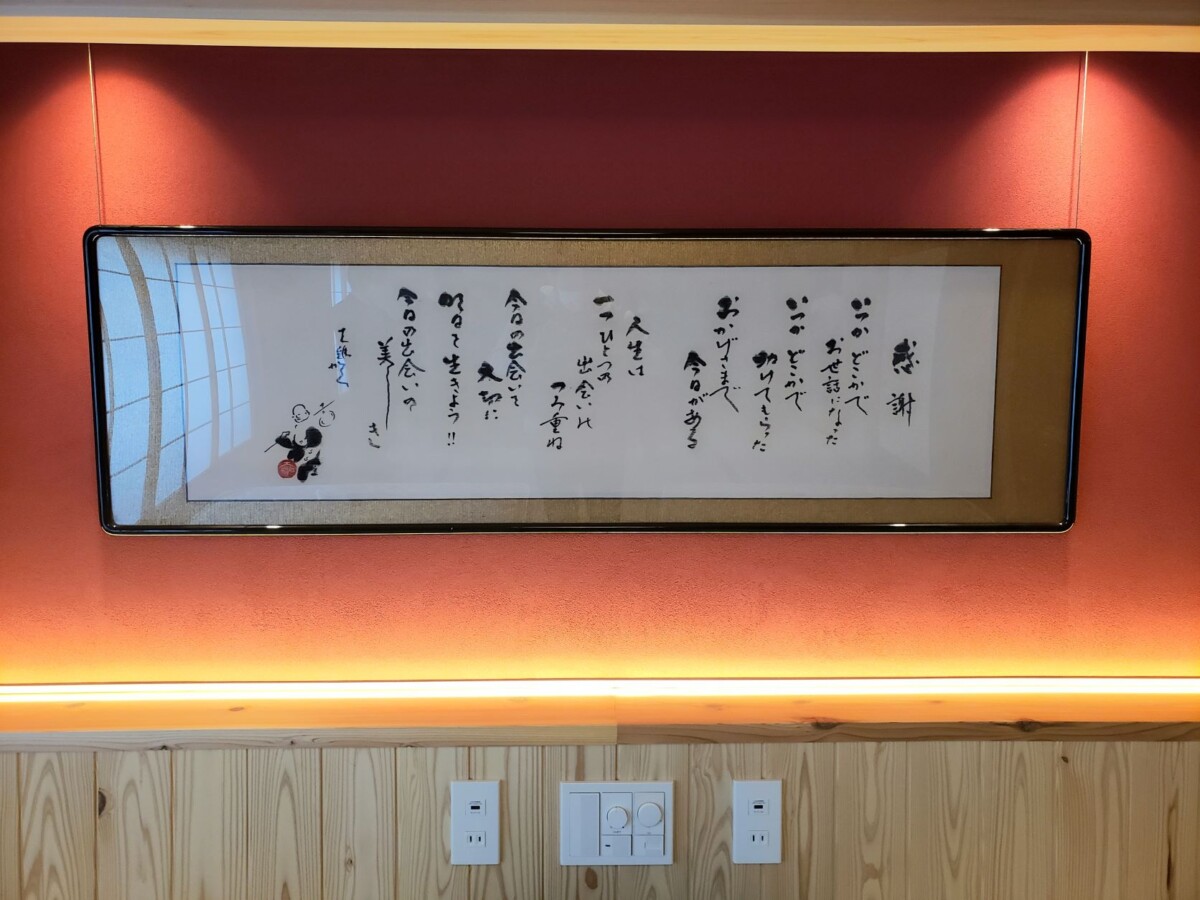 感謝
いつか どこかで
お世話になった
いつか どこかで
助けてもらった
おかげさまで
今日がある
人生は
一つひとつの
出会いの
つみ重ね
今日の出会いを
大切に
明日を生きよう!!
今日の出会いの
美しき